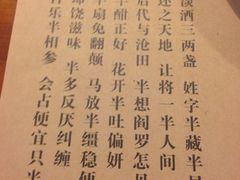 淡酒三两盏 姓字半藏半
还之天地 让将一半人间
后代与沧田 半想阎罗怎见
半酣正好 花开半吐偏妍
半扇免翻颠 马放半缰稳便
却饶滋味 半多反厌纠缠
乐半相参 会占便宜只半